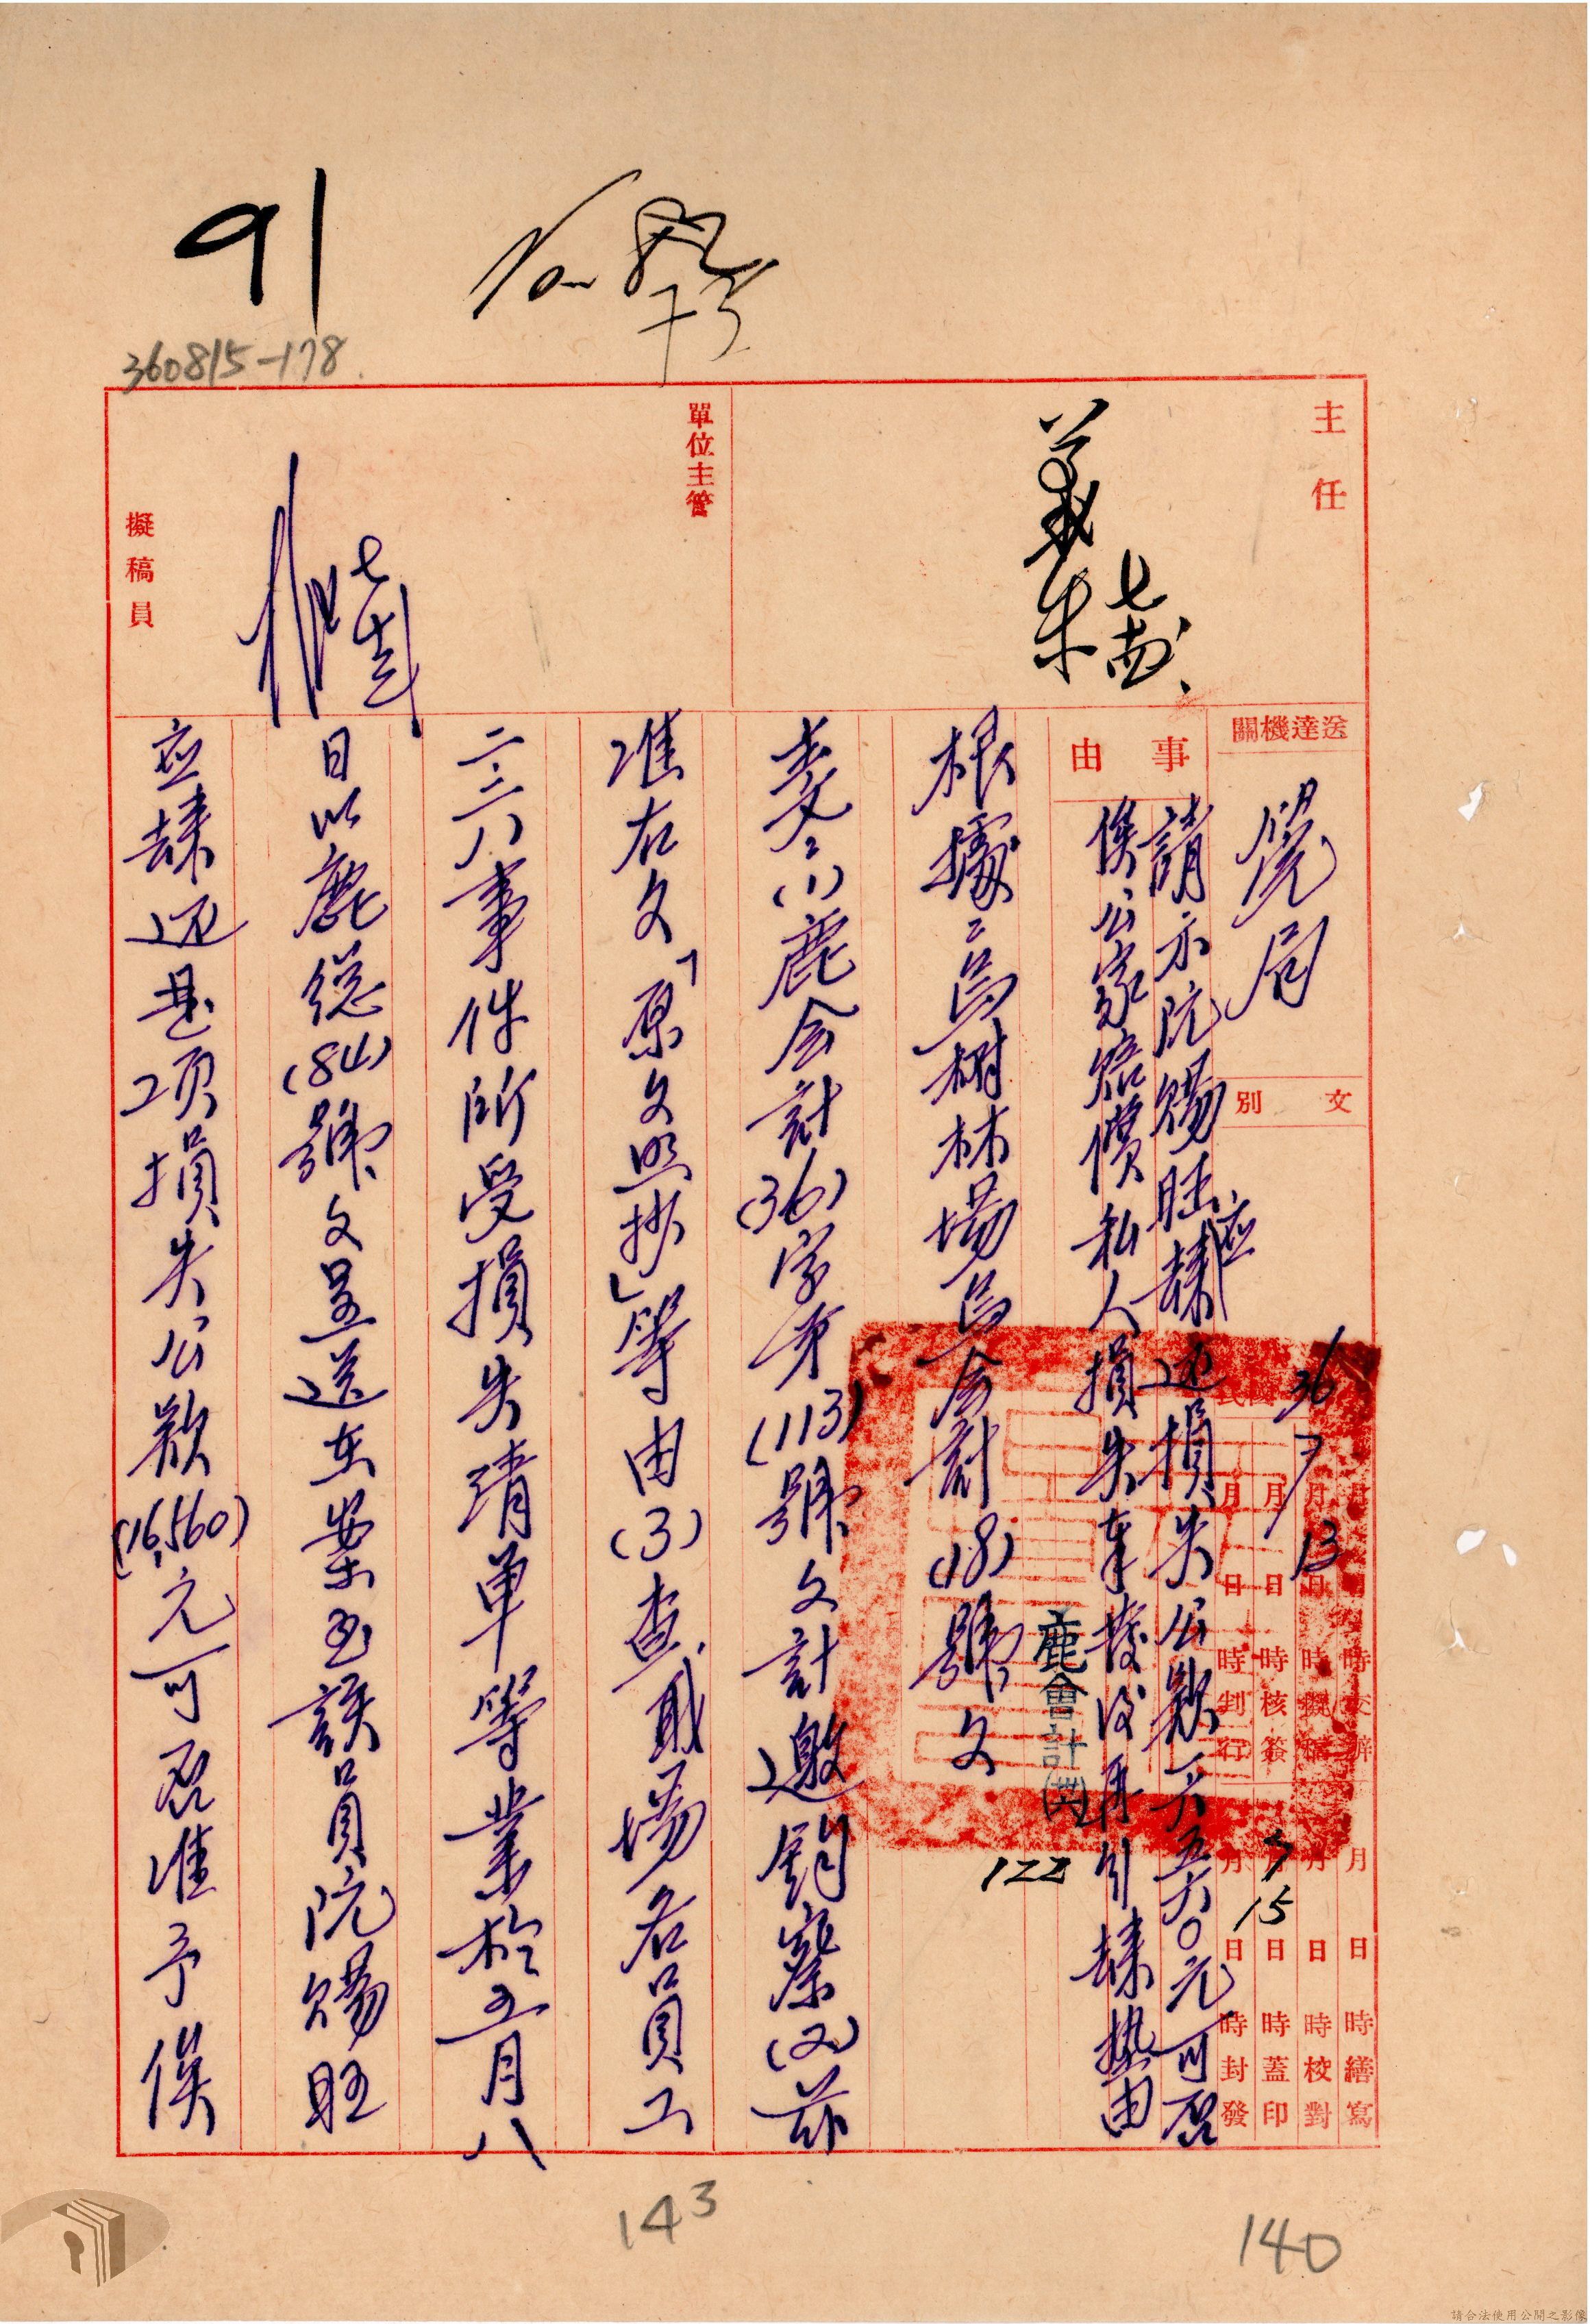 91
360815-178
主任
單位主管
擬稿員
送達機關
局
文別
事由
請示阮賜旺應歸還損失公款一六五六〇元可否
俟公家賠償私人損失奉撥後再引歸墊由
36 7 13
月 日 時交辦
月 日 時擬稿
月 日 時核簽
月 日 時判行
7 15
月 日 時繕寫
月 日 時校對
月 日 時蓋印
月 日 時封發
鹿會計(卅六)
122
根據:為樹林場烏会計(18)號文
(1)鹿会計(36)字第(113)號文計邀鈞察(2)茲
准右文「原文照抄」等由(3)查戢場各員工
二二八事件所受損失清單等業於五月八
日以鹿總(84)號文呈送在案至該員阮賜旺
應歸还是項損失公款(16,560)元可否准予俟
143
140
請合法使用公開之影像